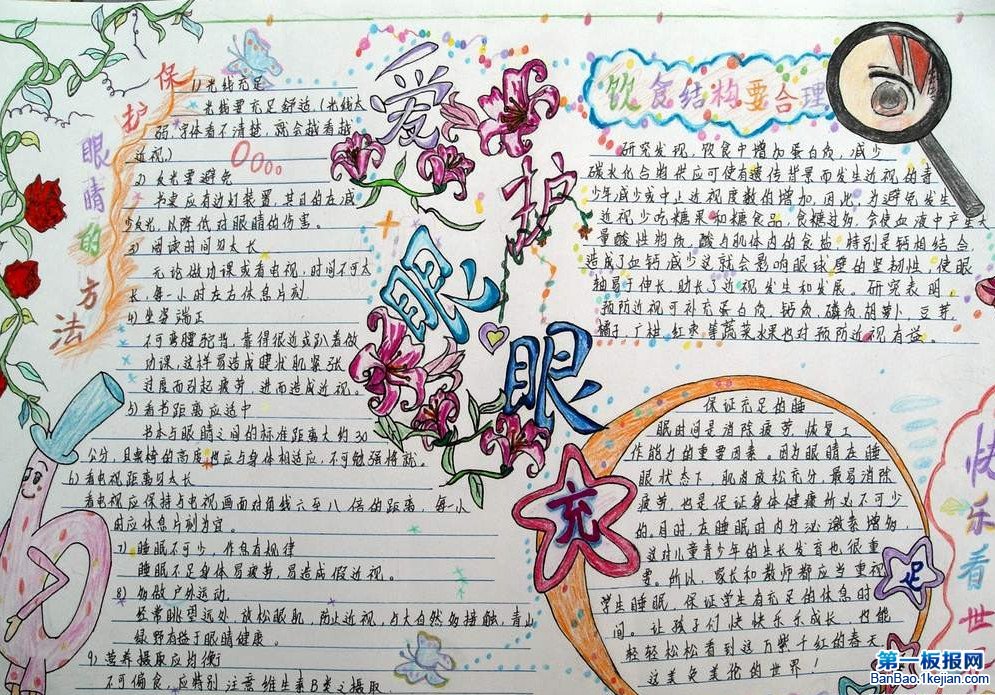 保护眼睛的方法
1) 光线充足
光线要充足舒适（光线太
弱，字体看不清楚，就会越看越
近视。）
2) 反光要避免
书桌应有边灯装置，其目的在减
少反光，以降低对眼睛的伤害。
3) 阅读时间勿太长
无论做功课或看电视，时间不可太
长，每一小时左右休息片刻
4) 坐姿端正
不可弯腰驼背，靠得很近或趴着做
功课，这样易造成睫状肌紧张
过度而引起疲劳，进而造成近视。
5) 看书距离应适中
书本与眼睛之间的标准距离大约30
公分，且桌椅的高度也应与身体相适应，不可勉强将就。
6) 看电视距离勿太长
看电视应保持与电视画面对角线六至八倍的距离，每一小
时应休息片刻为宜。
7) 睡眠不可少，作息有规律
睡眠不足身体易疲劳，易造成假近视。
8) 多做户外运动。
经常眺望远处，放松眼肌，防止近视，与大自然多接触，青山
绿野有益于眼睛健康。
9) 营养摄取应均衡
不可偏食，应特别注意维生素B类之摄取
爱护眼眼
饮食结构要合理
研究发现，饮食中增加蛋白质，减少
碳水化合物供应可使有遗传背景而发生近视的青
少年减少或中止近视度数的增加。因此，为避免发生
近视少吃糖果和糖食品。食糖过多，会使血液中产生大
量酸性物质，酸与肌体内的食盐，特别是钙相结合，
造成了血钙减少这就会影响眼球壁的坚韧性，使眼
轴易于伸长，助长了近视发生和发展。研究表明，
预防近视可补充蛋白质、钙质、磷质、胡萝卜、豆芽、
橘子、广柑、红枣等蔬菜水果也对预防近视有益
充足
保证充足的睡
眠时间是消除疲劳恢复工
作能力的重要因素。因为眼睛在睡
眠状态下，肌肉放松充分，最易消除
疲劳，也是保证身体健康所必不可少
的。同时，在睡眠时内分泌激素增多，
这对儿童青少年的生长发育也很重
要。所以，家长和教师都应当重视
学生睡眠，保证学生有充足的休息时
间。让孩子们快快乐乐成长，也能
轻轻松松看到这万紫千红的春天，
这美兔美伦的世界！
快乐看世
第一板报网
BanBao.1kejian.com